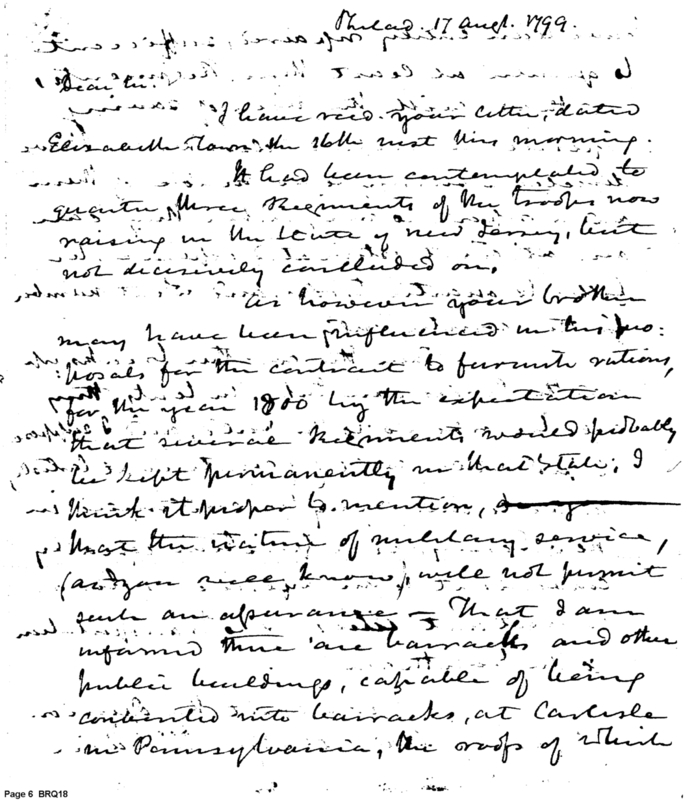 Philad. 17 Augt. 1799.
Dear Sir.
I have recd your letter, dated
Elizabeth Town the 16th inst this morning.
It had been contemplated to
quarter three Regiments of the troops now
raising in the State of New Jersey, but
not decisively concluded on.
As however your brother
may have been influenced in his pro:
:posals for the contract to furnish rations,
for the year 1800 by the expectation
that several Regiments would probably
be kept permanently in that State, I
think it proper to mention,
that the nature of military service,
(as you well know) will not permit
such an assurance — That I am
informed there are barracks and other
public buildings, capable of being
converted into barracks, at Carlisle
in Pennsylvania, the roofs of which
Page 6 BRQ18